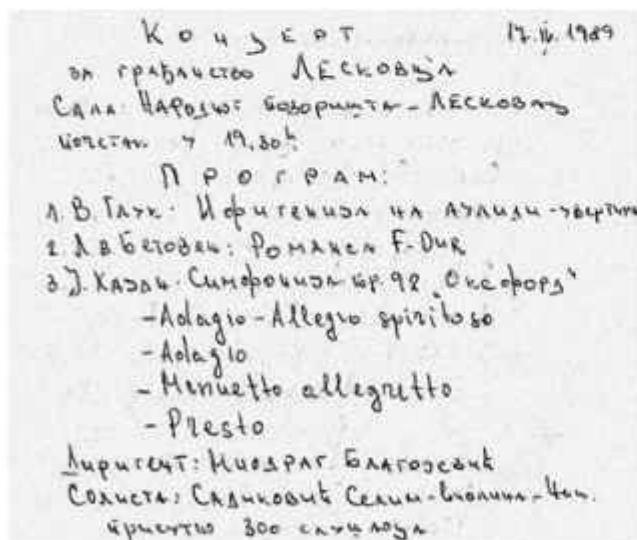 Концерт 17.IV.1989
за грађанство Лесковца
Сала: Народног позоришта - Лесковац
почетак у 19,30h
Програм:
1. В. Глук: Ифигенија на Аулиди - увертира
2. Л. в. Бетовен: Романса F-Dur
3. Ј. Хајдн: Симфонија бр. 92 „Оксфорд"
- Adagio - Allegro spiritoso
- Adagio
- Menuetto allegretto
- Presto
Диригент: Миодраг Благојевић
Солиста: Садиковић Селим - виолина -
присутно 300 слушалаца